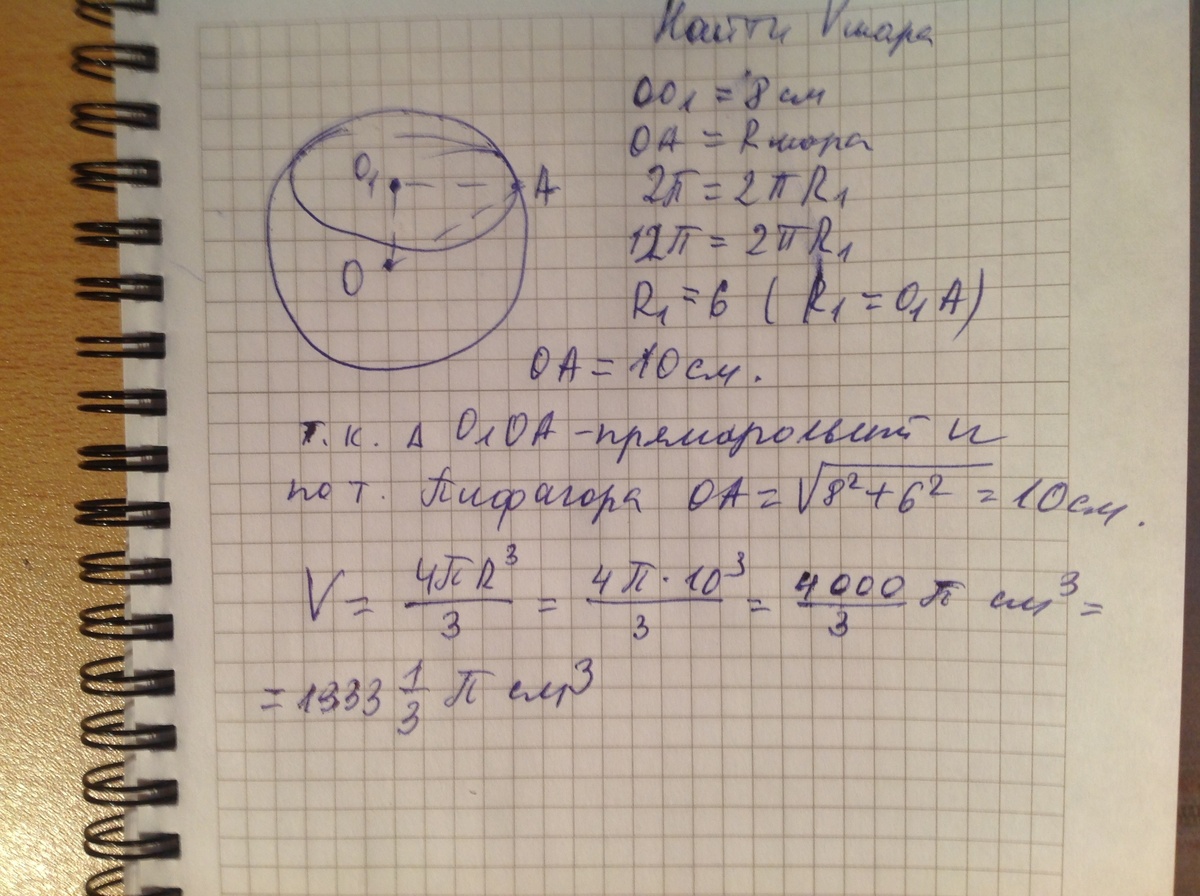 Найти Vшара
OO₁ = 8 см
OA = Rшара
2π = 2πR₁
12π = 2πR₁
R₁ = 6 ( R₁ = O₁A )
O₁
A
O
OA = 10 см.
т.к. Δ O₁OA - прямоугольный и
по т. Пифагора OA = √8² + 6² = 10 см.
V = 4πR³/3 = 4π·10³/3 = 4000/3 π см³ =
= 1333 1/3 π см³